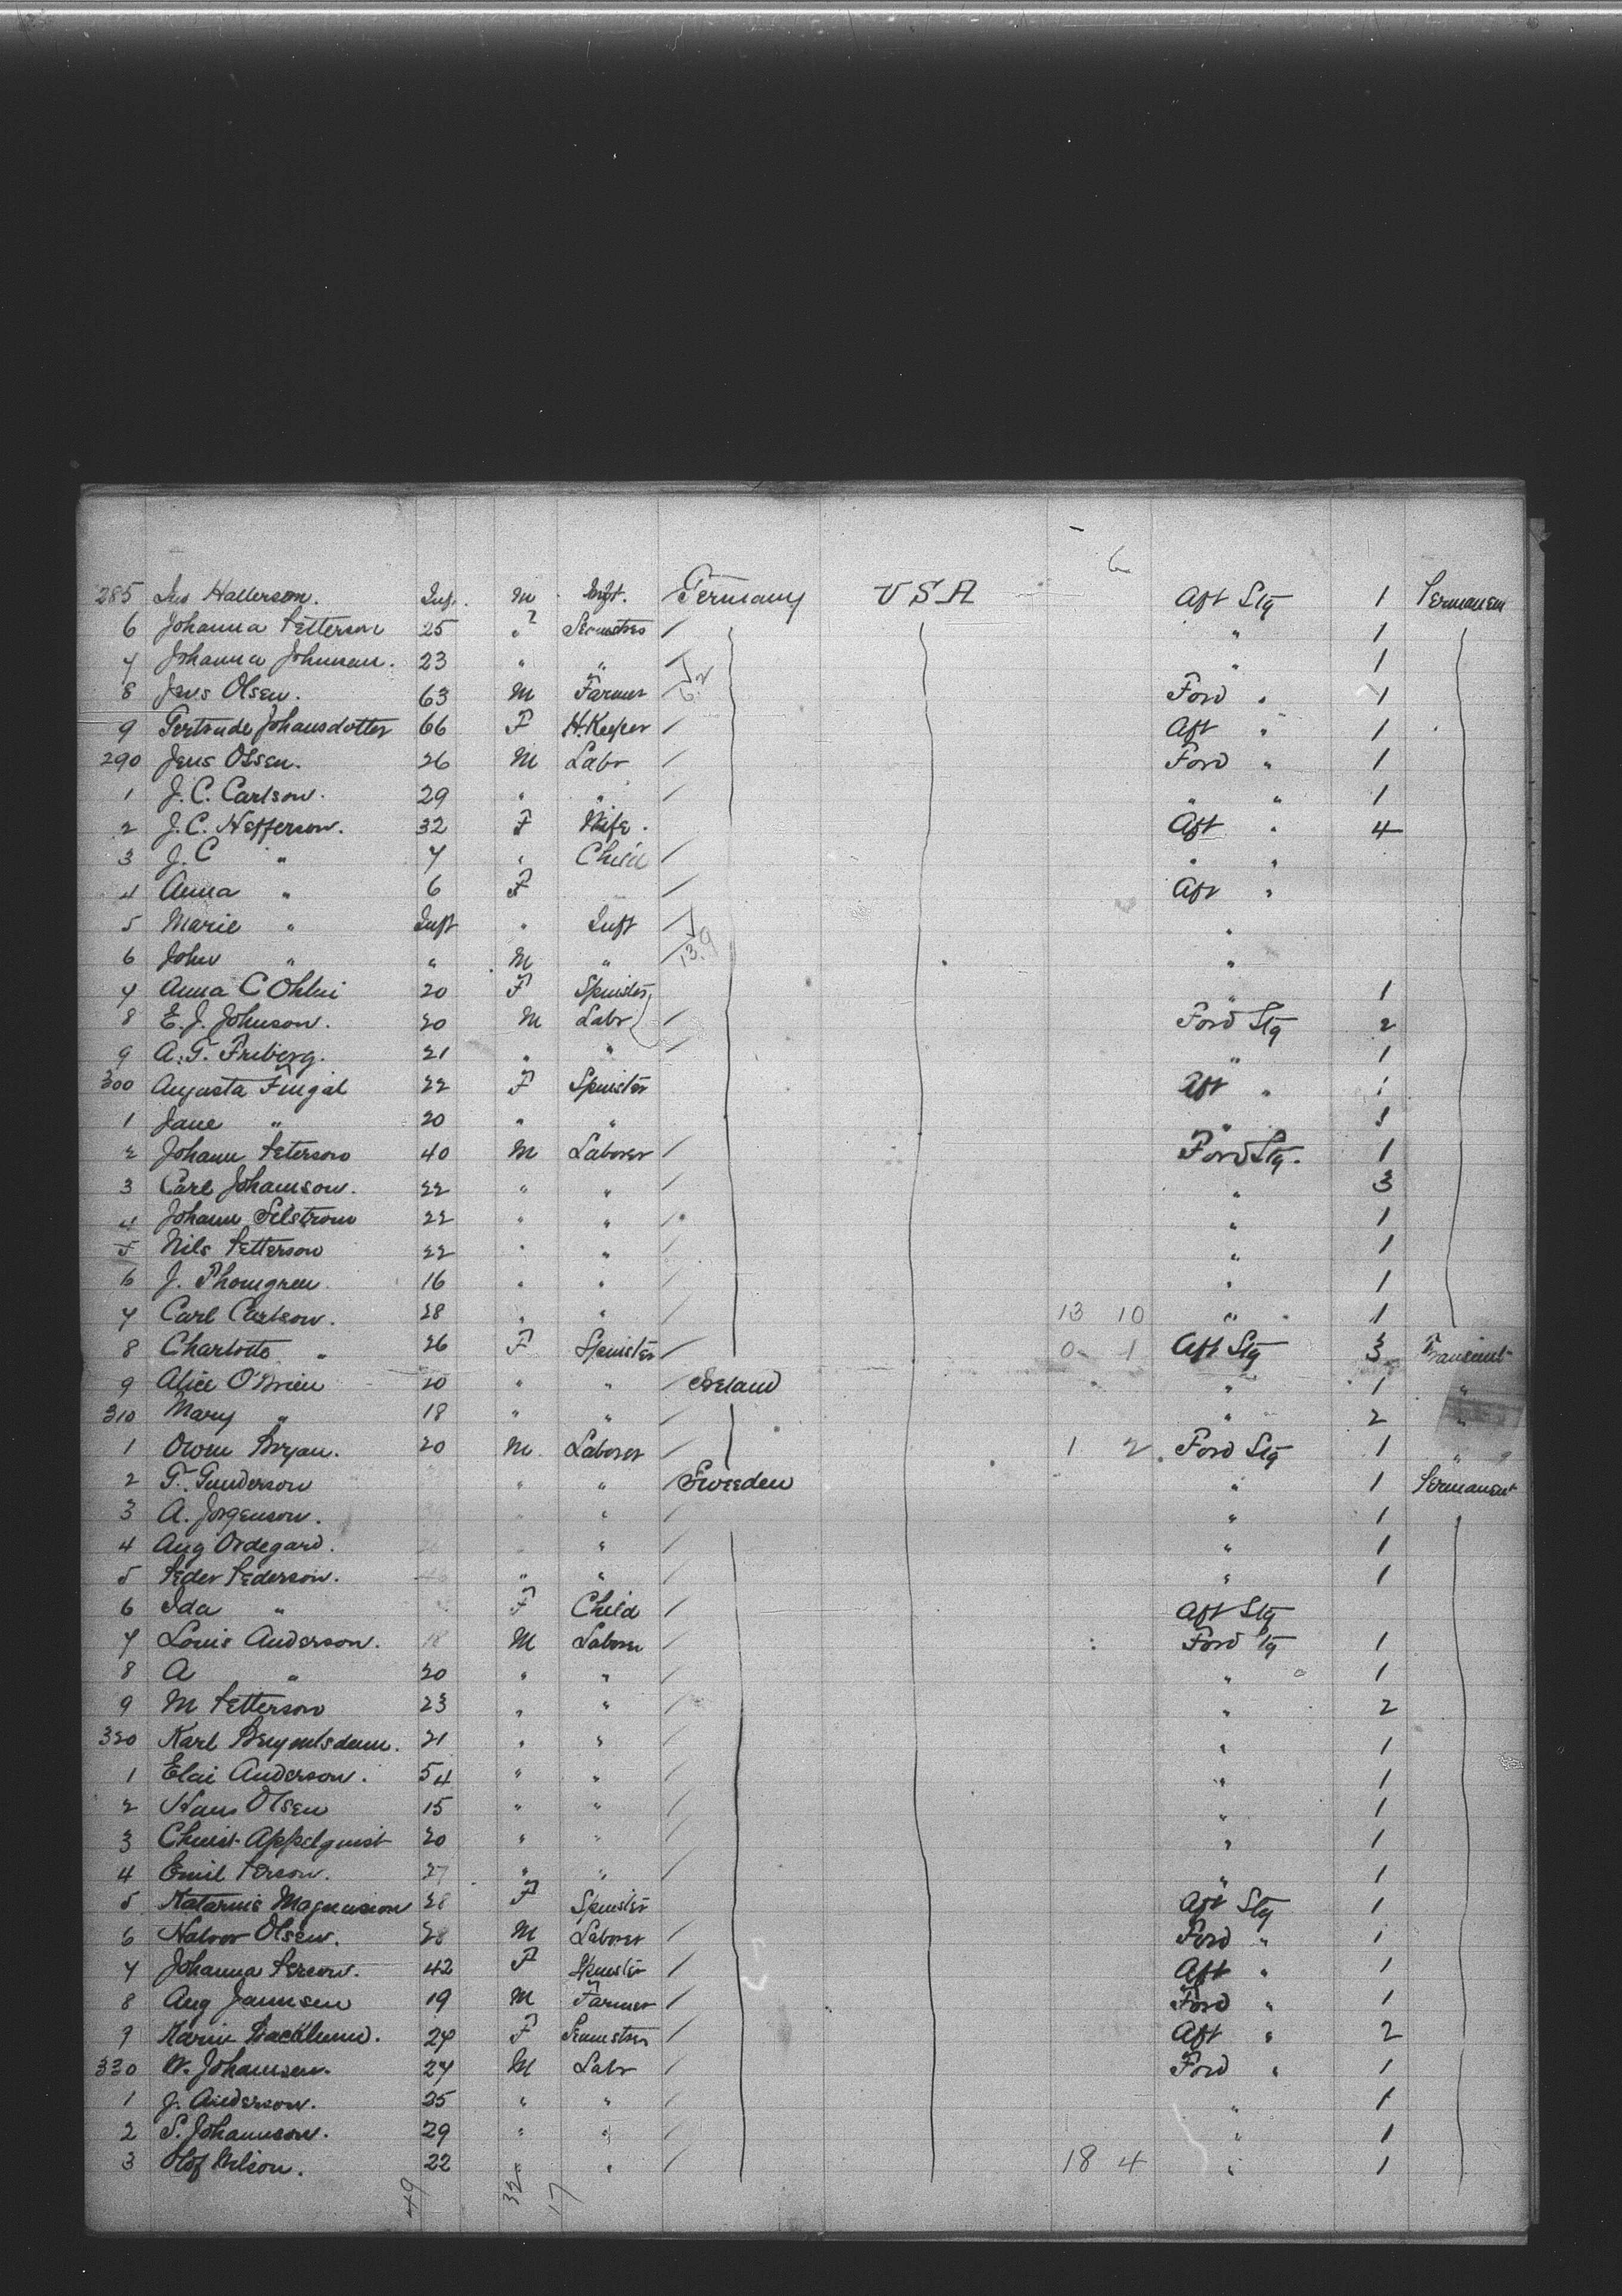 6
285 Hallerson. Inf. M Inft. Germany U S A Aft Stg 1 Permanent
6 Johanna Petterson 25 " Seamstress / " 1
7 Johanna Johnson. 23 " " / " 1
8 Jens Olsen. 63 M Farmer / Ford " 1
9 Gertrude Johansdotter 66 F H.Keeper / Aft " 1
290 Jens Olssen. 26 M Labr / Ford " 1
1 J. C. Carlson. 29 " " / " " 1
2 J. C. Nefferson. 32 F Wife. Aft " 4
3 J. C " 7 " Child / " "
4 Anna " 6 F / Aft "
5 Marie " Inft " Inft / "
6 John " " M " / "
7 Anna C Ohlin 20 F Spinster " 1
8 E. J. Johnson. 20 M Labr / Ford Stg 2
9 A. T. Friberg. 21 " " / " 1
300 Augusta Fingal 22 F Spinster Aft " 1
1 Jane " 20 " " " 1
2 Johann Peterson 40 M Laborer / Ford Stg. 1
3 Carl Johanson. 22 " " / " 3
4 Johann Selstrom 22 " " / " 1
5 Nils Petterson 22 " " / " 1
6 J. Thorngren 16 " " / " 1
7 Carl Carlson. 28 " " / 13 10 " " 1
8 Charlotte " 26 F Spinster / 0 1 Aft Stg 3 Transient
9 Alice O'Brien 20 " " / Ireland " 1 "
310 Mary " 18 " " / " 2 "
1 Owen Bryan. 20 M. Laborer / 1 2 Ford Stg 1 "
2 T. Gunderson " " / Sweeden " 1 Permanent
3 A. Jorgenson. " " / " 1
4 Aug Ordegard. " " / " 1
5 Peder Pederson. " " / " 1
6 Ida " F Child / Aft Stg
7 Louis Anderson. 18 M Laborer / Ford Stg 1
8 A " 20 " " / " 1
9 M Petterson 23 " " / " 2
320 Karl 21 " " / " 1
1 Elai Anderson. 54 " " / " 1
2 Hans Olsen 15 " " / " 1
3 Christ Appelquist 20 " " / " 1
4 Emil Person. 27 " " / " 1
5 Katarnis Magnusson 28 F Spinster Aft Stg 1
6 Halvor Olsen. 28 M Laborer / Ford " 1
7 Johanna Person. 42 F Spinster / Aft " 1
8 Aug Jannsen 19 M Farmer / Ford " 1
9 Karin Backlund. 24 F Seamstress / Aft " 2
330 W. Johannsen. 27 M Labr / Ford " 1
1 J. Anderson. 25 " " / " 1
2 S. Johannson. 29 " " / " 1
3 Olof Nilson. 22 " " / 18 4 " 1
49 32 17